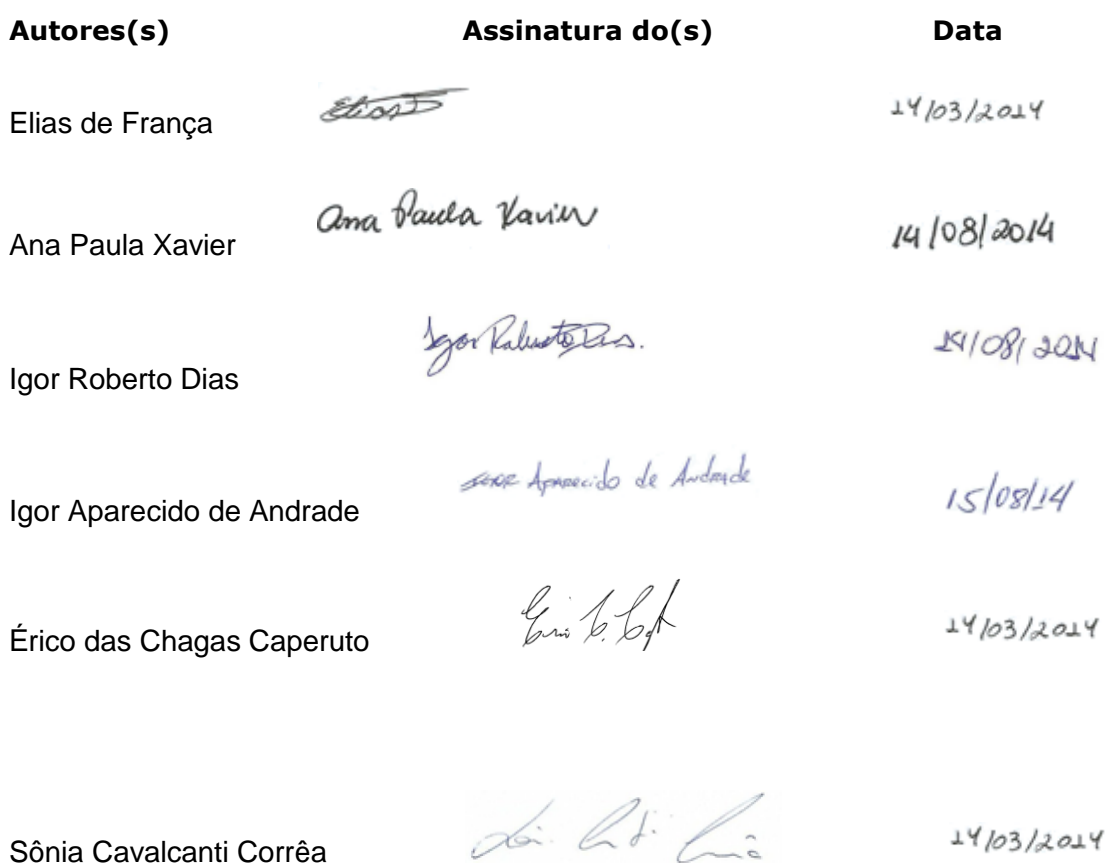 Autores(s) Assinatura do(s) Data
Elias de França Elias F 14/03/2014
Ana Paula Xavier Ana Paula Xavier 14/08/2014
Igor Roberto Dias Igor Roberto Dias. 14/08/2014
Igor Aparecido de Andrade IGOR Aparecido de Andrade 15/08/14
Érico das Chagas Caperuto 14/03/2014
Sônia Cavalcanti Corrêa 14/03/2014